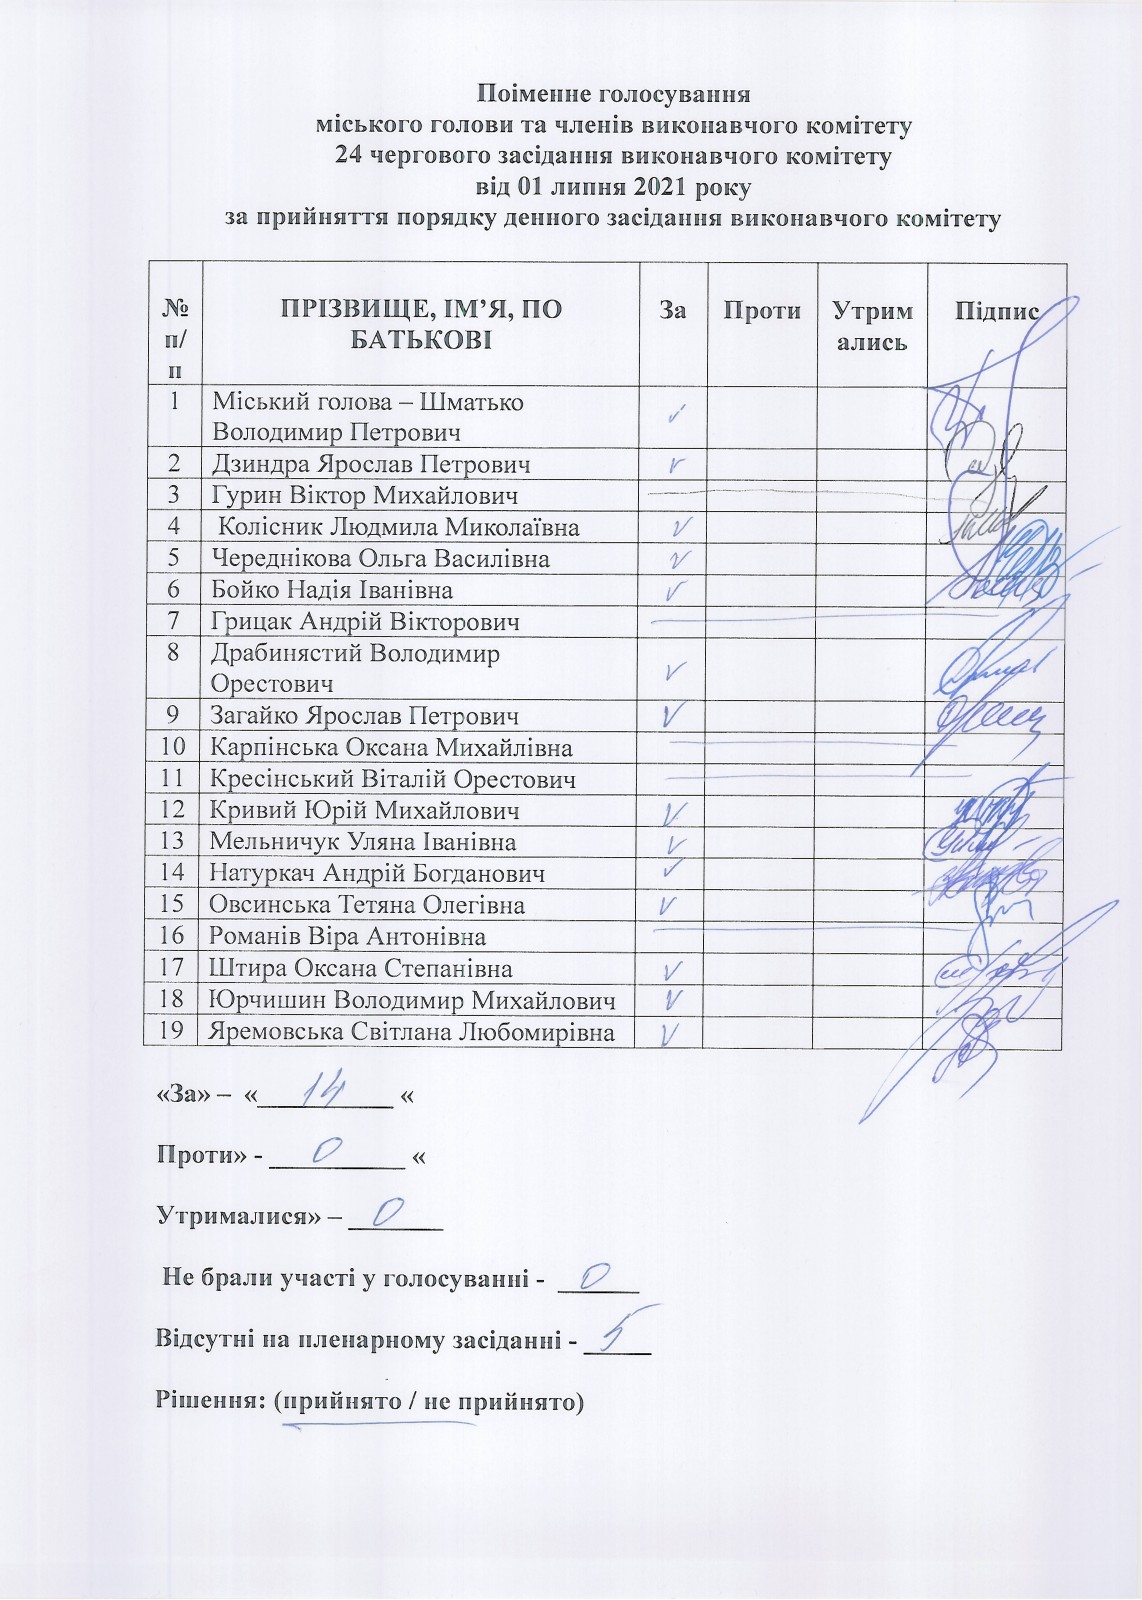 Поіменне голосування
міського голови та членів виконавчого комітету
24 чергового засідання виконавчого комітету
від 01 липня 2021 року
за прийняття порядку денного засідання виконавчого комітету
№ п/п ПРІЗВИЩЕ, ІМ’Я, ПО БАТЬКОВІ За Проти Утримались Підпис
1 Міський голова – Шматько
Володимир Петрович
2 Дзиндра Ярослав Петрович
3 Гурин Віктор Михайлович
4 Колісник Людмила Миколаївна
5 Череднікова Ольга Василівна
6 Бойко Надія Іванівна
7 Грицак Андрій Вікторович
8 Драбинястий Володимир
Орестович
9 Загайко Ярослав Петрович
10 Карпінська Оксана Михайлівна
11 Кресінський Віталій Орестович
12 Кривий Юрій Михайлович
13 Мельничук Уляна Іванівна
14 Натуркач Андрій Богданович
15 Овсинська Тетяна Олегівна
16 Романів Віра Антонівна
17 Штира Оксана Степанівна
18 Юрчишин Володимир Михайлович
19 Яремовська Світлана Любомирівна
«За» – « 14 «
Проти» - 0 «
Утрималися» – 0
Не брали участі у голосуванні - 0
Відсутні на пленарному засіданні - 5
Рішення: (прийнято / не прийнято)